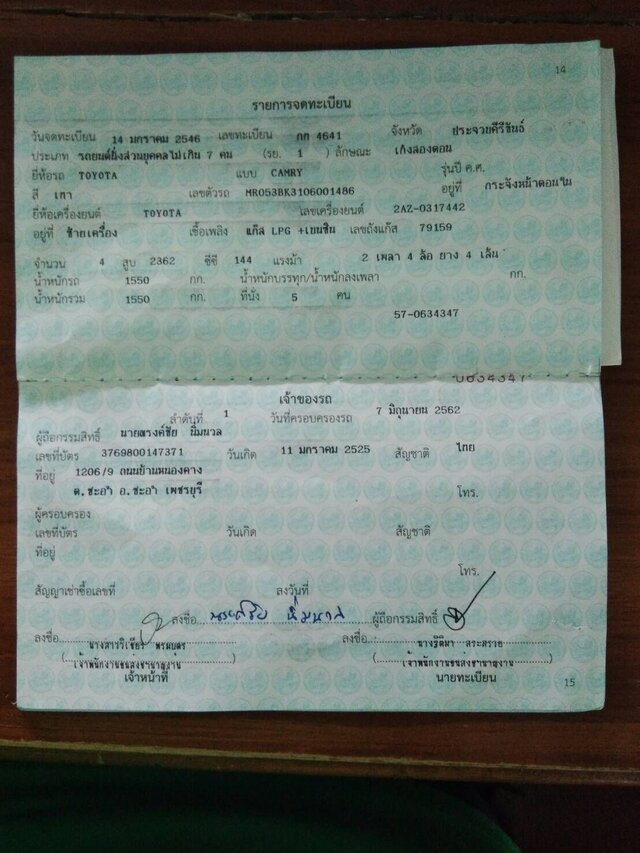 14
รายการจดทะเบียน
วันจดทะเบียน 14 มกราคม 2546 เลขทะเบียน กก 4641 จังหวัด ประจวบคีรีขันธ์
ประเภท รถยนต์นั่งส่วนบุคคลไม่เกิน 7 คน (รย. 1 ) ลักษณะ เก๋งสองตอน
ยี่ห้อรถ TOYOTA แบบ CAMRY รุ่นปี ค.ศ.
สี เทา เลขตัวรถ MR053BK3106001486 อยู่ที่ กระจังหน้าตอนใน
ยี่ห้อเครื่องยนต์ TOYOTA เลขเครื่องยนต์ 2AZ-0317442
อยู่ที่ ซ้ายเครื่อง เชื้อเพลิง แก๊ส LPG +เบนซิน เลขถังแก๊ส 79159
จำนวน 4 สูบ 2362 ซีซี 144 แรงม้า 2 เพลา 4 ล้อ ยาง 4 เส้น
น้ำหนักรถ 1550 กก. น้ำหนักบรรทุก/น้ำหนักลงเพลา กก.
น้ำหนักรวม 1550 กก. ที่นั่ง 5 คน
57-0634347
0634347
เจ้าของรถ
ลำดับที่ 1 วันที่ครอบครองรถ 7 มิถุนายน 2562
ผู้ถือกรรมสิทธิ์ นายณรงค์ชัย นิ่มนวล
เลขที่บัตร 3769800147371 วันเกิด 11 มกราคม 2525 สัญชาติ ไทย
ที่อยู่ 1206/9 ถนนบ้านหนองคาง
ต.ชะอำ อ.ชะอำ เพชรบุรี โทร.
ผู้ครอบครอง
เลขที่บัตร วันเกิด สัญชาติ
ที่อยู่
โทร.
สัญญาเช่าซื้อเลขที่ ลงวันที่
ลงชื่อ ณรงค์ชัย นิ่มนวล ผู้ถือกรรมสิทธิ์
ลงชื่อ ลงชื่อ
(เจ้าพนักงานขนส่งชำนาญงาน) (เจ้าพนักงานขนส่งชำนาญงาน)
เจ้าหน้าที่ นายทะเบียน
15